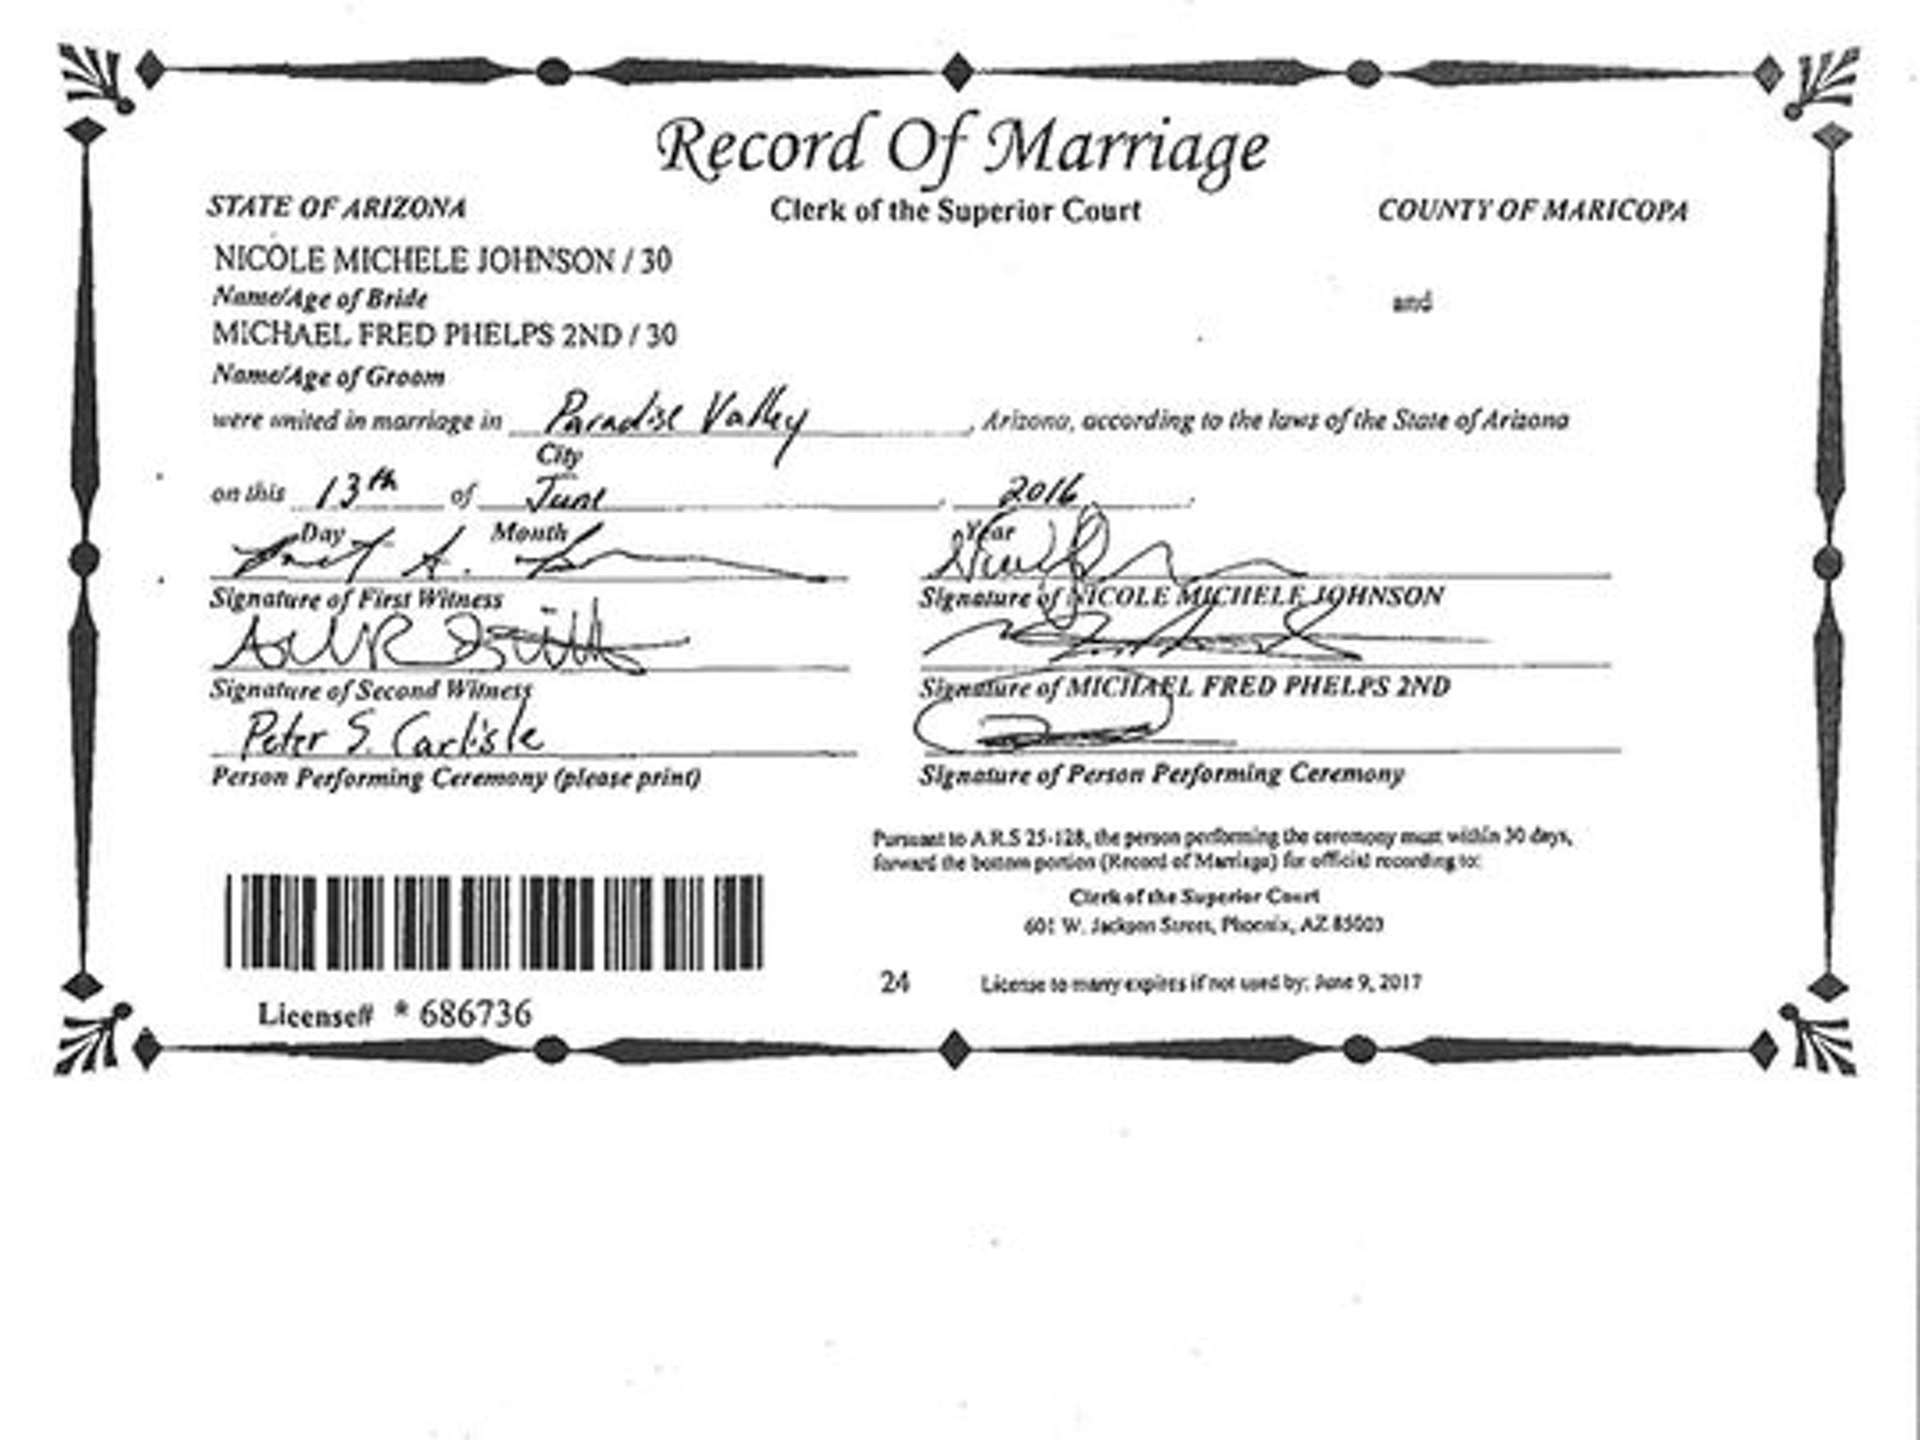 Record Of Marriage
STATE OF ARIZONA Clerk of the Superior Court COUNTY OF MARICOPA
NICOLE MICHELE JOHNSON / 30
Name/Age of Bride and
MICHAEL FRED PHELPS 2ND / 30
Name/Age of Groom
were united in marriage in Paradise Valley, Arizona, according to the laws of the State of Arizona
City
on this 13th of June, 2016.
Day Month Year
Signature of First Witness Signature of NICOLE MICHELE JOHNSON
Signature of Second Witness Signature of MICHAEL FRED PHELPS 2ND
Peter S. Carlisle
Person Performing Ceremony (please print) Signature of Person Performing Ceremony
Pursuant to A.R.S 25-128, the person performing the ceremony must within 30 days,
forward the bottom portion (Record of Marriage) for official recording to:
Clerk of the Superior Court
601 W. Jackson Street, Phoenix, AZ 85003
24 License to marry expires if not used by: June 9, 2017
License# * 686736